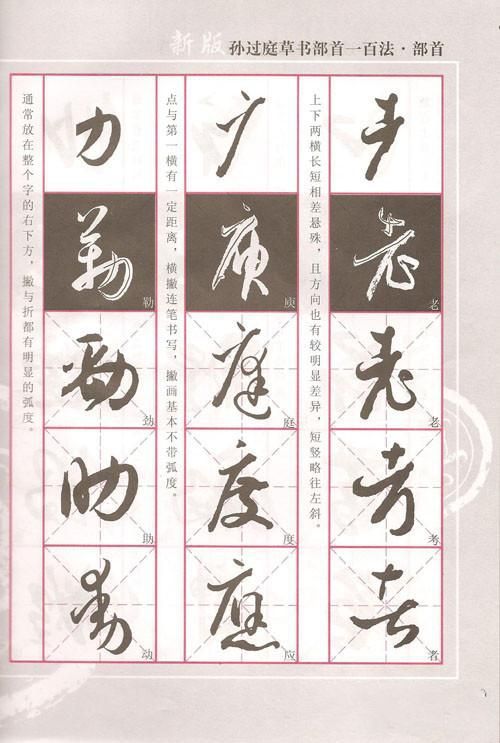 新版 孙过庭草书部首一百法·部首
耂
老
老
考
者
上下两横长短相差悬殊，且方向也有较明显差异，短竖略往左斜。
广
庭
度
应
点与第一横有一定距离，横撇连笔书写，撇画基本不带弧度。
力
勒
劲
助
动
通常放在整个字的右下方，撇与折都有明显的弧度。